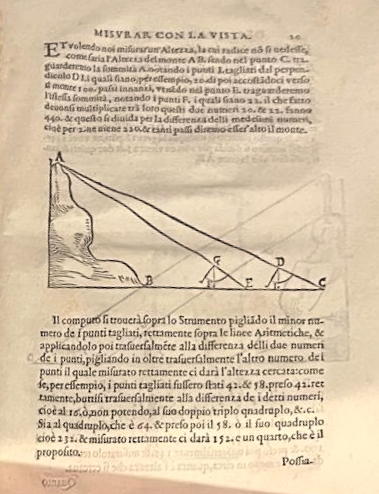 MISURAR CON LA VISTA. 20
ET volendo noi misurar un'Altezza, la cui radice nõ si vedesse,
come saria l'Altezza del monte A B. sendo nel punto C. tra-
guarderemo la sommità A. notando i punti I. tagliati dal perpen-
dicolo D I. i quali siano, per essempio, 20. di poi accostãdoci verso
il monte 100. passi innanzi, venẽdo nel punto E. traguarderemo
l'istessa sommità, notando i punti F. i quali siano 22. il che fatto
devonsi multiplicare trà loro questi due numeri 20. & 22. fanno
440. & questo si divida per la differenza delli medesimi numeri,
cioè per 2. ne viene 220. & tanti passi diremo esser'alto il monte.
A
G D
B F E I C
Il computo si trouerà sopra lo Strumento pigliãdo il minor nu-
mero de i punti tagliati, rettamente sopra le linee Aritmetiche, &
applicandolo poi trasuersalmẽte alla differenza delli due numeri
de i punti, pigliando in oltre trasuersalmente l'altro numero de i
punti il quale misurato rettamente ci darà l'altezza cercata: come
se, per essempio, i punti tagliati fussero stati 42. & 58. preso 42. ret
tamente, buttisi trasuersalmente alla differenza de i detti numeri,
cioè al 16. ò, non potendo, al suo doppio triplo quadruplo, &c.
Sia al quadruplo, che è 64. & preso poi il 58. ò il suo quadruplo
cioè 232. & misurato rettamente ci darà 152. e un quarto, che è il
proposito.
Possia-